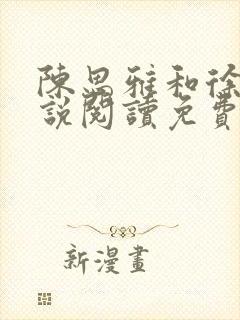 陳思雅和徐
說閱讀免費
新漫畫